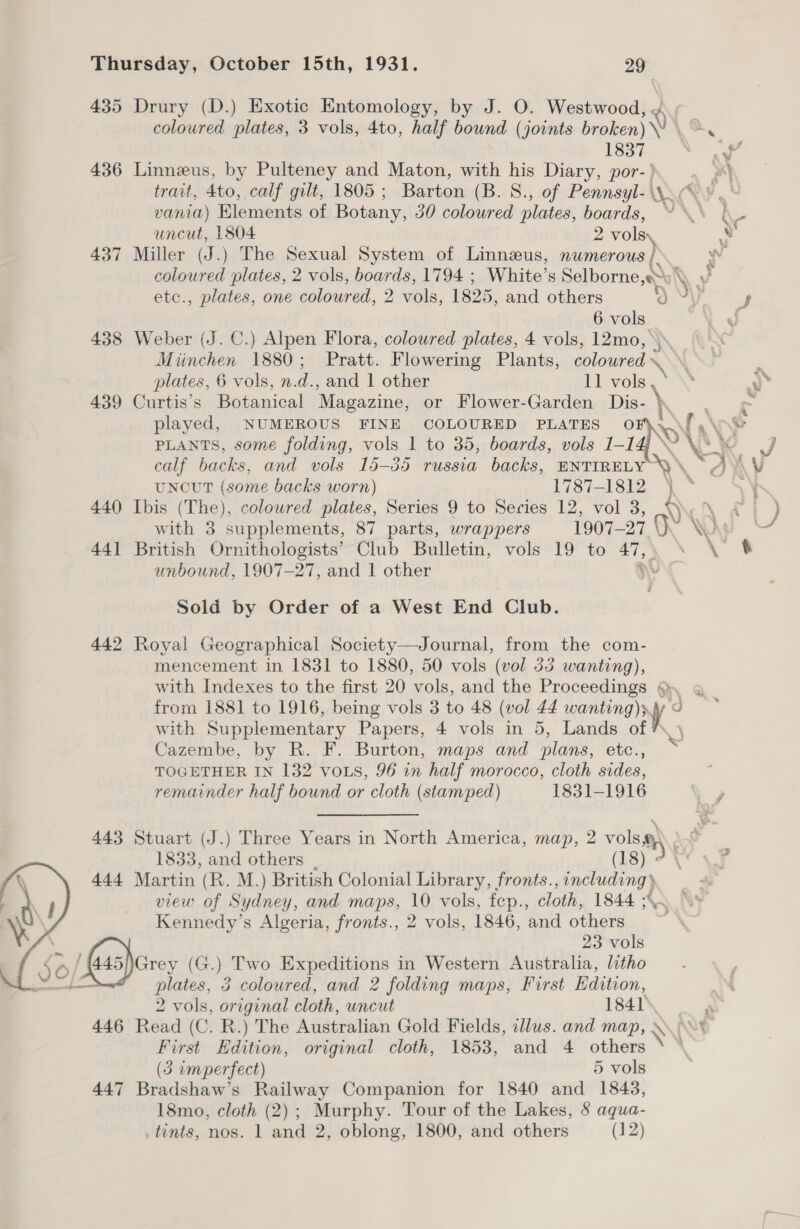 Thursday, October 15th, 1931. 29
435 Drury (D.) Exotic Entomology, by J. O. Westwood,
coloured plates, 3 vols, 4to, half bound (joints broken)
1837
436 Linnæus, by Pulteney and Maton, with his Diary, por-
trait, 4to, calf gilt, 1805 ; Barton (B. S., of Pennsyl-
vania) Elements of Botany, 30 coloured plates, boards,
uncut, 1804 2 vols
437 Miller (J.) The Sexual System of Linnæus, numerous
coloured plates, 2 vols, boards, 1794 ; White's Selborne,
etc., plates, one coloured, 2 vols, 1825, and others
6 vols
438 Weber (J. C.) Alpen Flora, coloured plates, 4 vols, 12mo,
München 1880 ; Pratt. Flowering Plants, coloured
plates, 6 vols, n.d., and 1 other 11 vols
439 Curtis's Botanical Magazine, or Flower-Garden Dis-
played, NUMEROUS FINE COLOURED PLATES OF
PLANTS, some folding, vols 1 to 35, boards, vols 1-14
calf backs, and vols 15-35 russia backs, ENTIRELY
UNCUT (some backs worn) 1787-1812
440 Ibis (The), coloured plates, Series 9 to Series 12, vol 3,
with 3 supplements, 87 parts, wrappers 1907-27
441 British Ornithologists' Club Bulletin, vols 19 to 47,
unbound, 1907-27, and 1 other
Sold by Order of a West End Club.
442 Royal Geographical Society—Journal, from the com-
mencement in 1831 to 1880, 50 vols (vol 33 wanting),
with Indexes to the first 20 vols, and the Proceedings
from 1881 to 1916, being vols 3 to 48 (vol 44 wanting),
with Supplementary Papers, 4 vols in 5, Lands of
Cazembe, by R. F. Burton, maps and plans, etc.,
TOGETHER IN 132 VOLS, 96 in half morocco, cloth sides,
remainder half bound or cloth (stamped) 1831-1916
443 Stuart (J.) Three Years in North America, map, 2 vols
1833, and others (18)
444 Martin (R. M.) British Colonial Library, fronts., including
view of Sydney, and maps, 10 vols, fcp., cloth, 1844 ;
Kennedy's Algeria, fronts., 2 vols, 1846, and others
23 vols
445 Grey (G.) Two Expeditions in Western Australia, litho
plates, 3 coloured, and 2 folding maps, First Edition,
2 vols, original cloth, uncut 1841
446 Read (C. R.) The Australian Gold Fields, illus. and map,
First Edition, original cloth, 1853, and 4 others
(3 imperfect) 5 vols
447 Bradshaw's Railway Companion for 1840 and 1843,
18mo, cloth (2) ; Murphy. Tour of the Lakes, 8 aqua-
tints, nos. 1 and 2, oblong, 1800, and others (12)